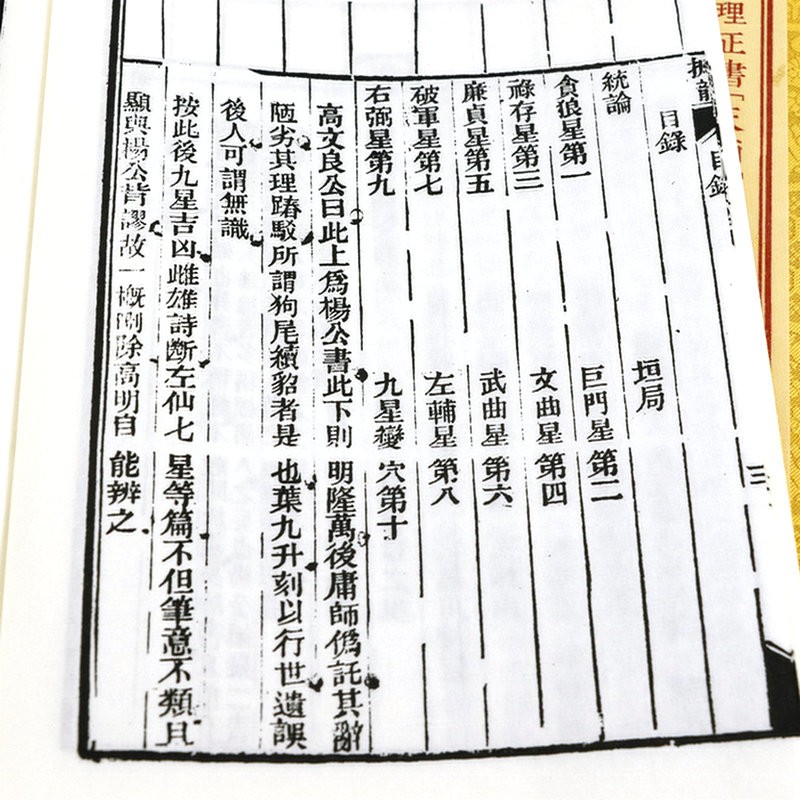 理正書
撼龍
目錄
目錄
三
統論
垣局
貪狼星第一
巨門星第二
祿存星第三
文曲星第四
廉貞星第五
武曲星第六
破軍星第七
左輔星第八
右弼星第九
九星變穴第十
高文良公曰此上爲楊公書此下則明隆萬後庸師僞託其辭
陋劣其理踳駁所謂狗尾續貂者是也葉九升刻以行世遺誤
後人可謂無識
按此後九星吉凶雌雄詩斷左仙七星等篇不但筆意不類且
顯與楊公背謬故一槪刪除高明自能辨之